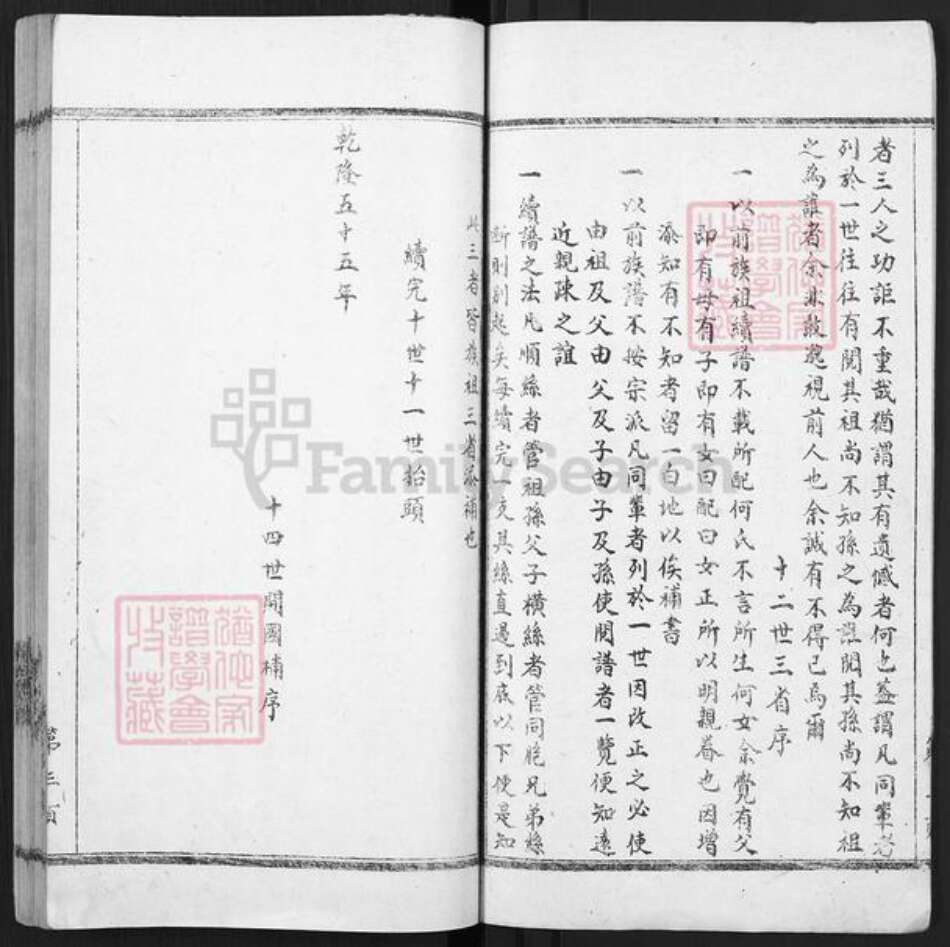 者三人之功詎不重哉猶謂其有遺憾者何也蓋謂凡同輩者
列於一世往往有閱其祖尚不知孫之為誰閱其孫尚不知祖
之為誰者余非敢藐視前人也余誠有不得已焉爾
十二世三省序
一以前族祖續譜不載所配何氏不言所生何女余覺有父
即有母有子即有女曰配曰女正所以明親眷也因增
添知有不知者留一白地以俟補書
一以前族譜不按宗派凡同輩者列於一世因改正之必使
由祖及父由父及子由子及孫使閱譜者一覽便知遠
近親疎之誼
一續譜之法凡順絲者管祖孫父子橫絲者管同胞兄弟絲
斷則別起矣每續完一支其絲直過到底以下便是知
此三者皆族祖三省添補也
續完十世十一世抬頭
乾隆五十五年
十四世開國補序
第三頁
譜學會
收藏
FamilySearch